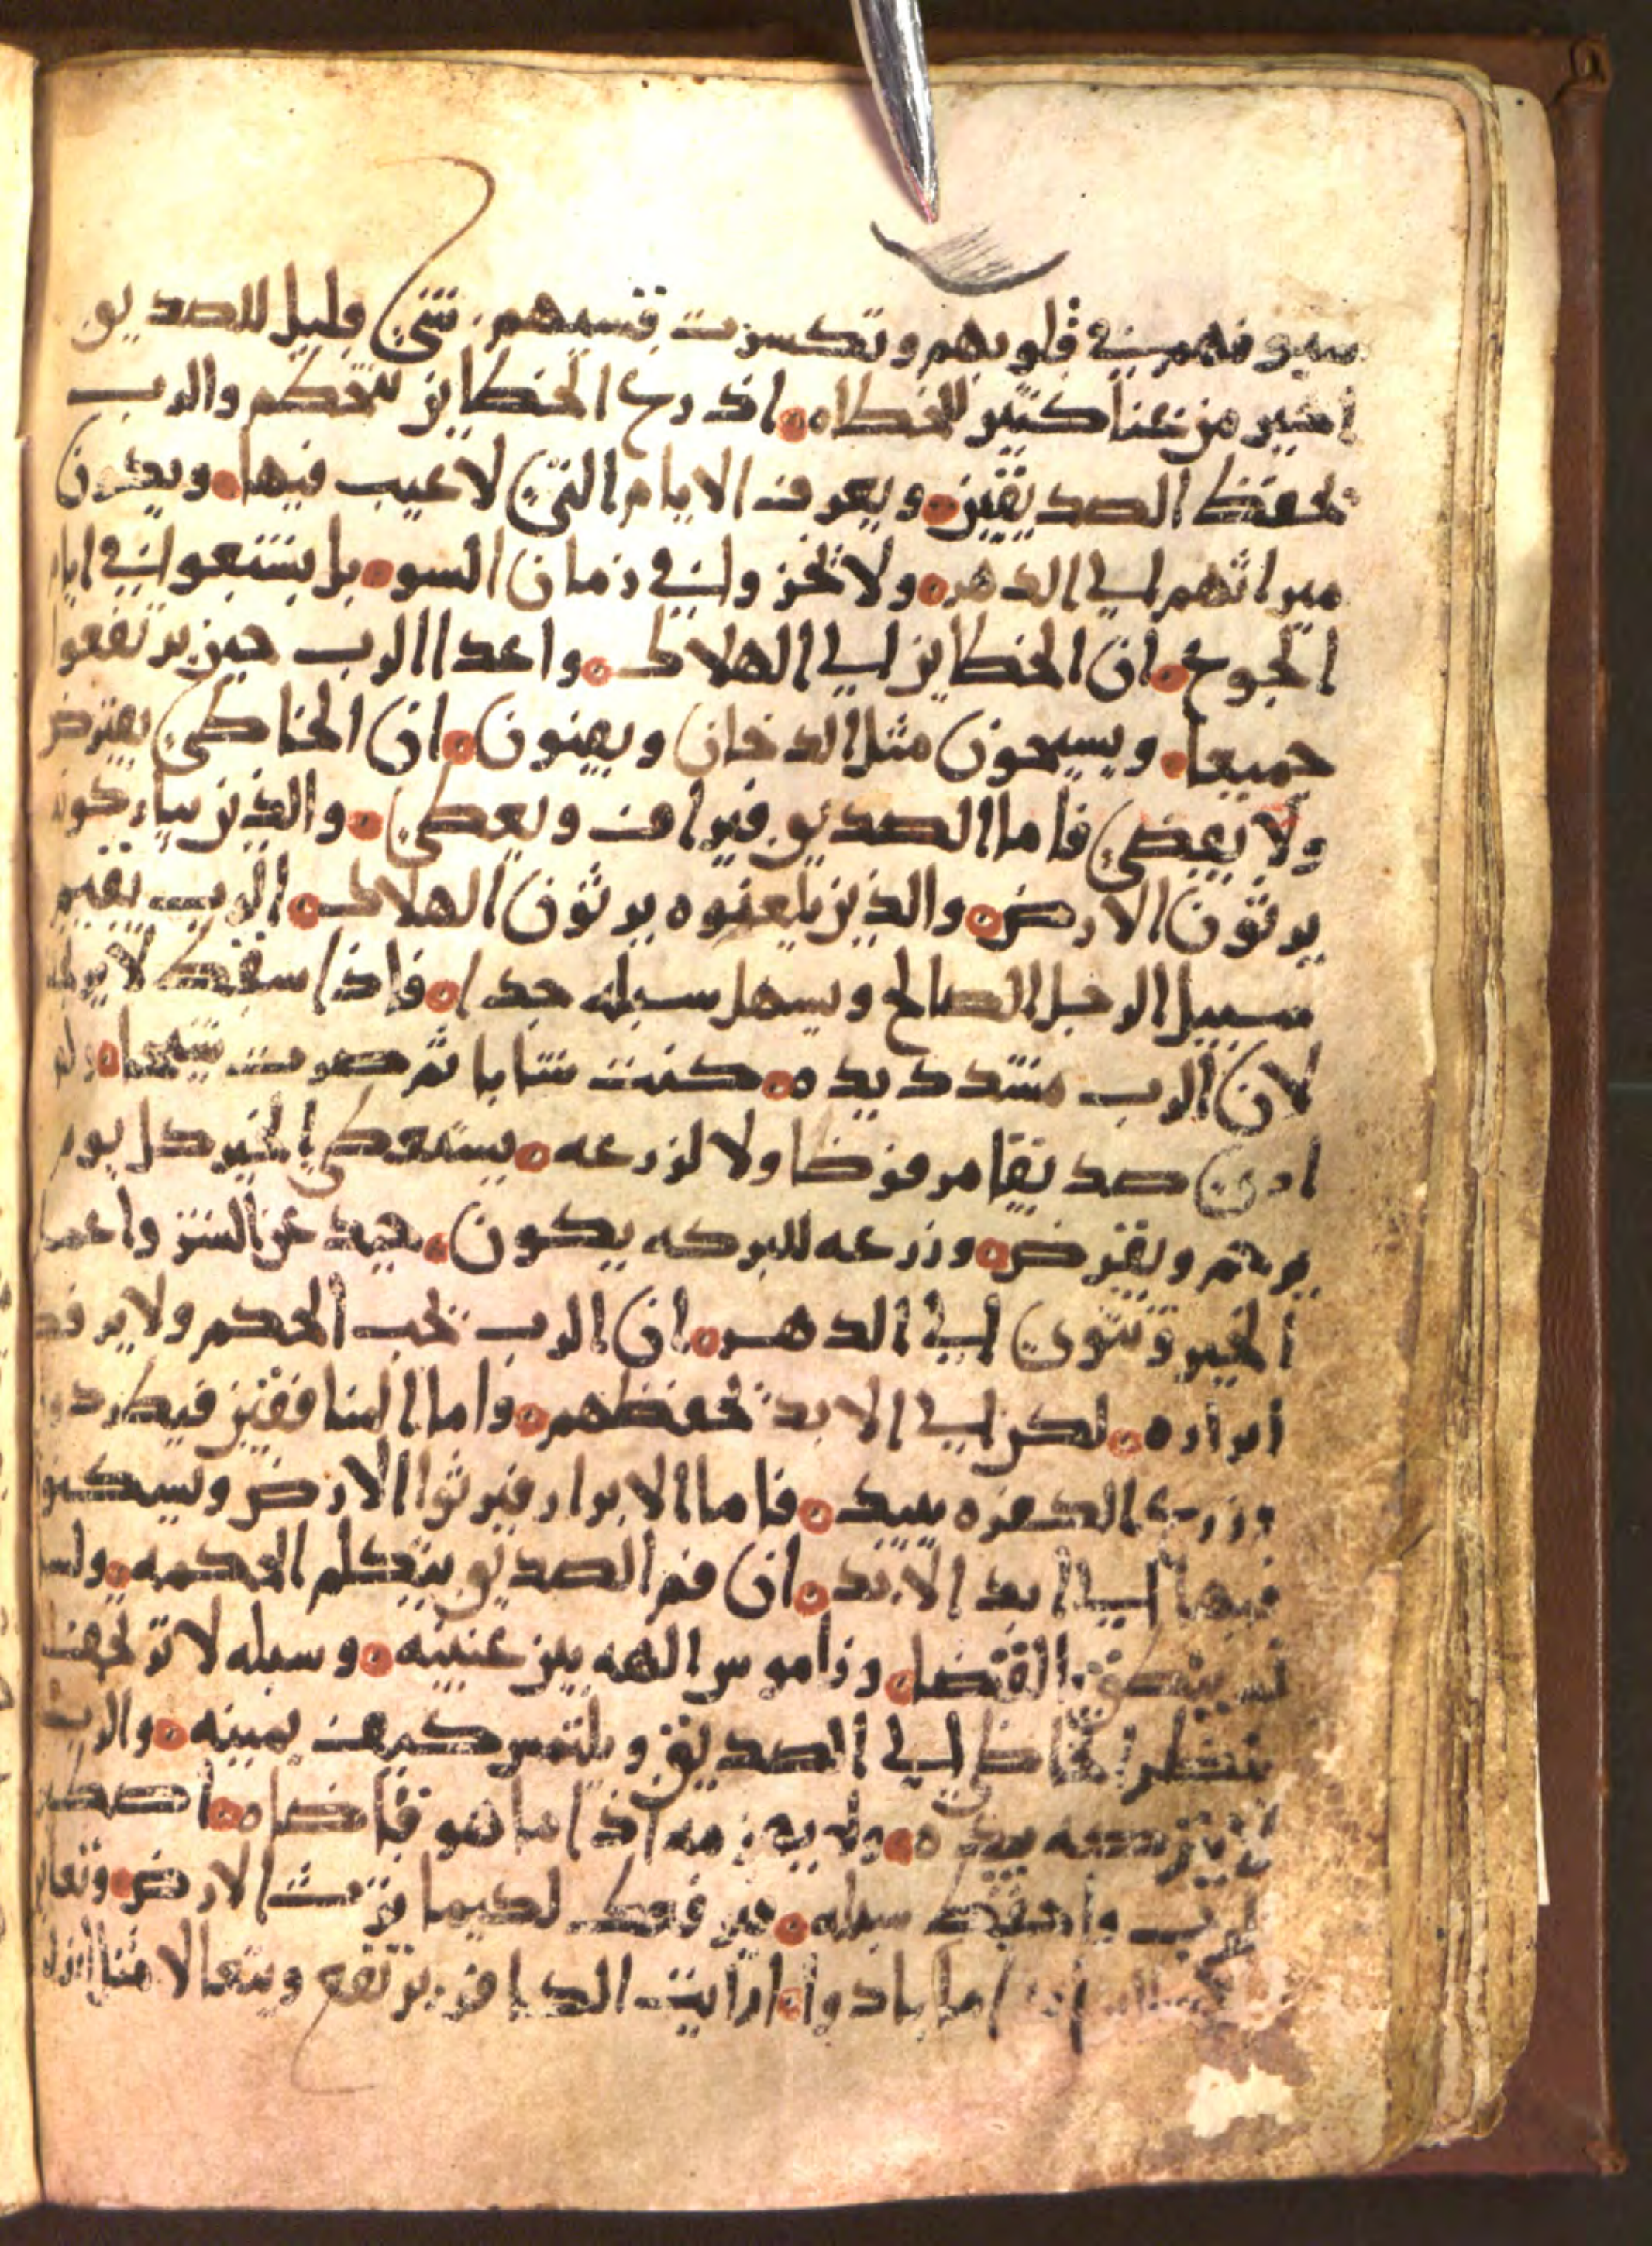 سيوفهم في قلوبهم وتكسرت قسيهم. شي قليل للصديق
اخير من غنا كثير للخطاه. اذرع الخطاين تتحكم والرب
يحفظ الصديقين. ويعرف الايام التي لا عيب فيها. ويكون
ميراثهم الى الدهر. ولا يخزوا في زمان السو. بل يشبعوا في ايام
الجوع. ان الخطاين الى الهلاك. واعدا الرب حين يرتفعوا
جميعا. ويسيحون مثل الدخان ويفنون. ان الخاطي يقترض
ولا يقضي فاما الصديق فيراف ويعطي. والذين يباركونه
يرثون الارض. والذين يلعنوه يرثون الهلاك. الرب يقيم
سبيل الرجل الصالح ويسهل سبله جدا. فاذا سقط لا يرجف
لان الرب مشدد يده. كنت شابا ثم صرت شيخا. ولم
ارى صديقا مرفوضا ولا لزرعه. يستعطي الخبز كل يوم
يرحم ويقرض. وزرعه للبركه يكون. حيد عن الشر واعمل
الخير وتثوى الى الدهر. ان الرب يحب الحكم ولا يرفض
ابراره. لكن الى الابد يحفظهم. واما المنافقين فيطردون
وزرع الكفره يبيد. فاما الابرار فيرثوا الارض ويسكنوا
فيها الى ابد الابد. ان فم الصديق يتكلم الحكمه. ولسا
نه ينطق القضا. وناموس الهه بين عينيه. وسبله لا ترتجف
ينظر الخاطي الى الصديق ويلتمس كيف يميته. والرب
لا يتركه بيده. ولا يهزمه اذا ما هو قاضاه. اصطبر
للرب واحفظ سبله. فيرفعك لكيما ترث الارض. وتعاين
الخطاه اذا ما بادوا. ارايت الكافر يرتفع ويتعالا مثل ارز